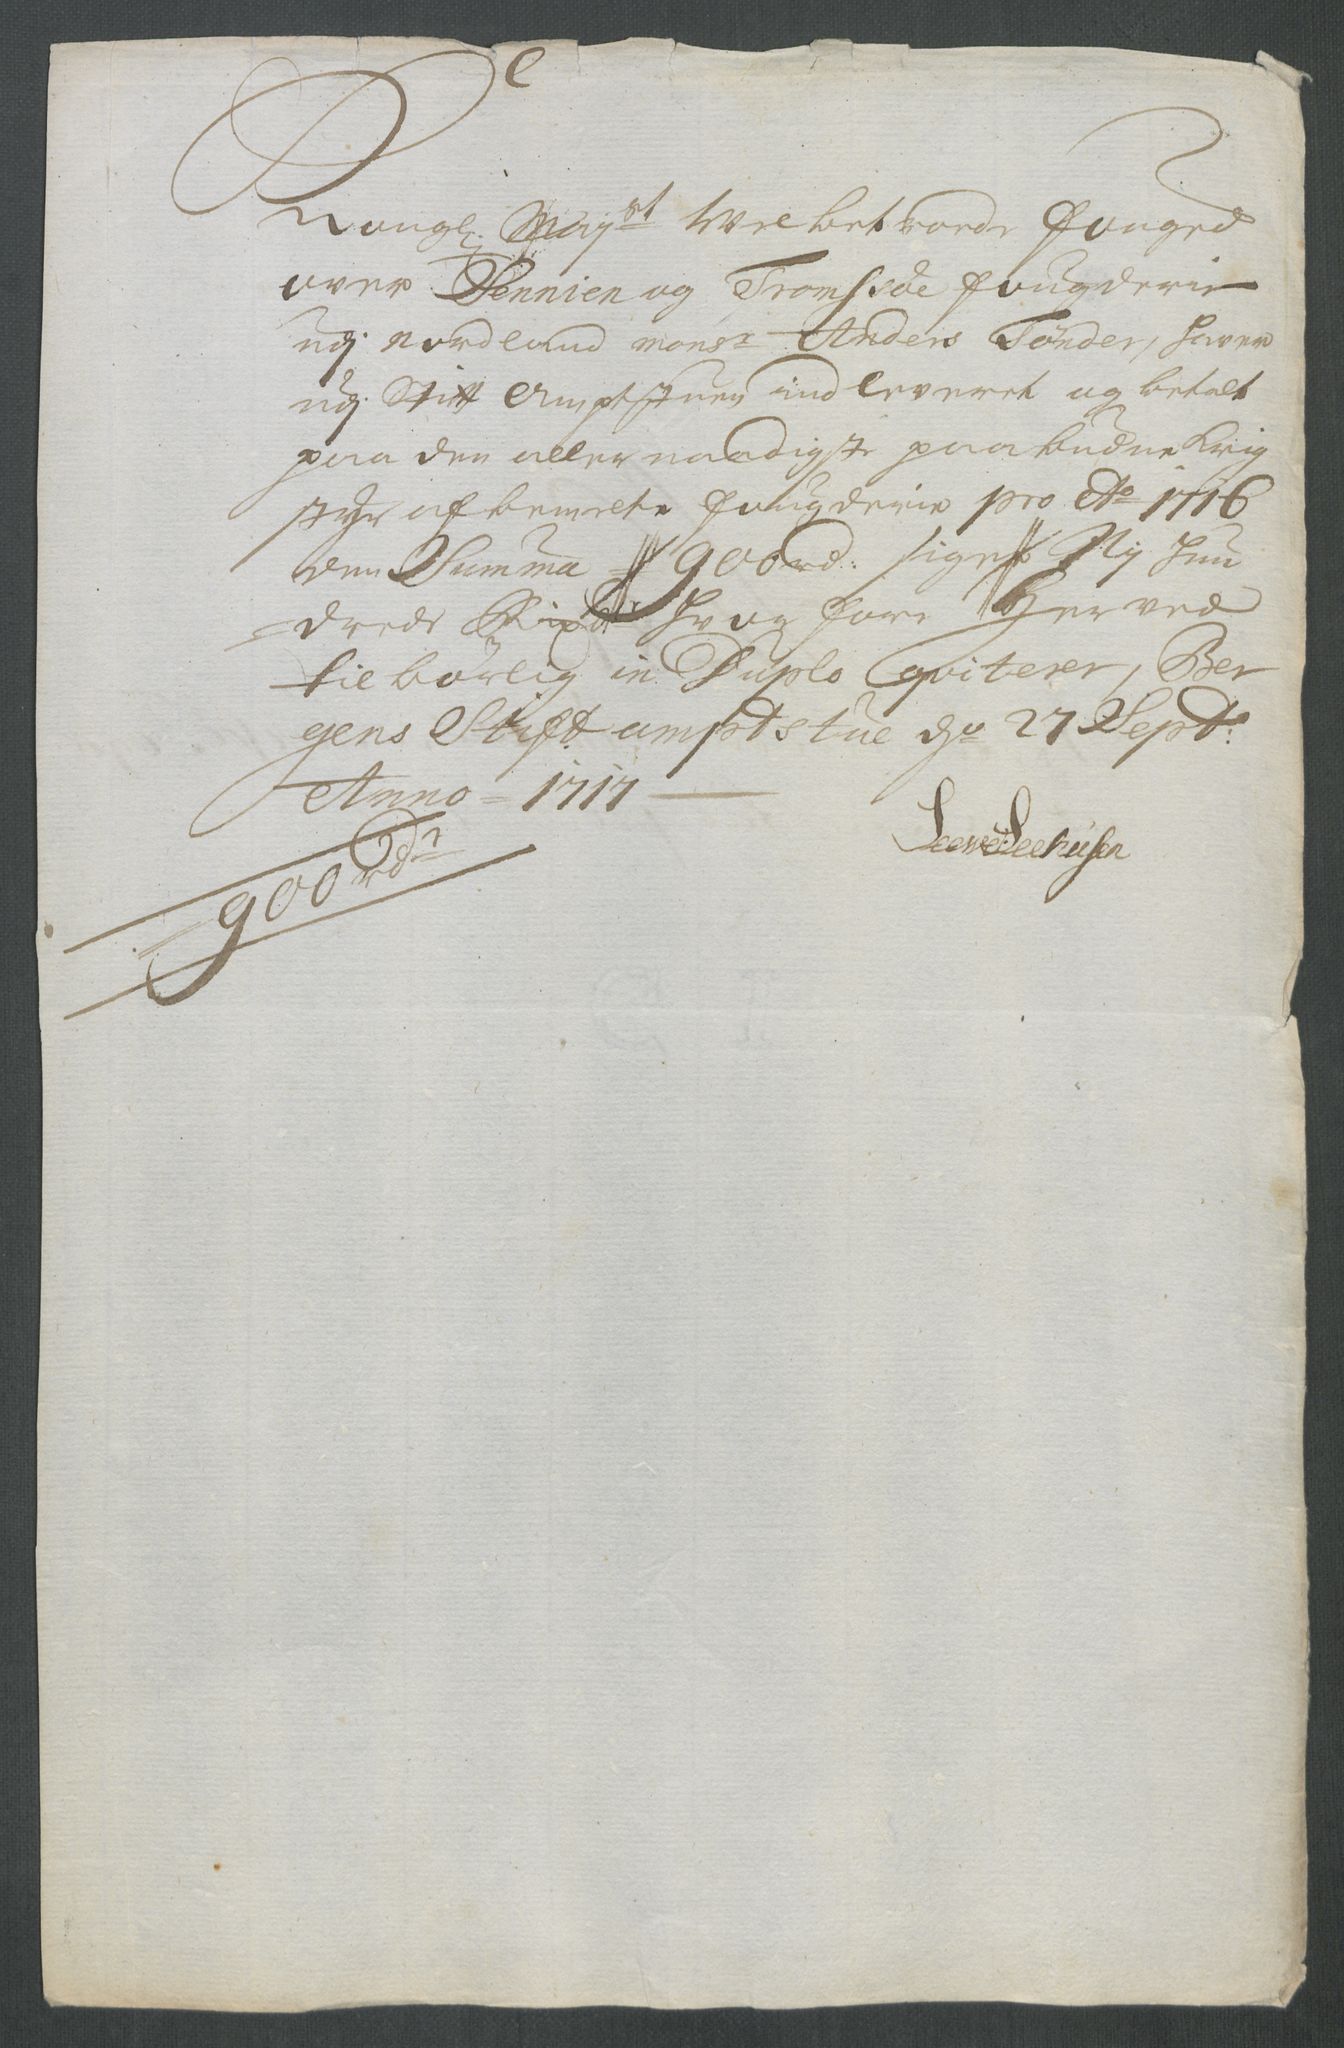 e
Kongl: May:st Wel betroede Fouged
over Sennien og Tromssöe fougderie
udj nordland mons:r Anders Tönder, haver
udj Stift Amptstuen indleveret og betalt
paa den allernaadigste paabudne Krig
styr af bemelte fougderie pro Ao 1716
den Summa 900 rd: siger Nj hun
drede Rixdr hvorfore Herved
tilbörlig in Duplo qviterer, Ber
gens Stiftamptstue do 27 Sept:
Anno = 1717
Leewe Leehusen
900 rdr